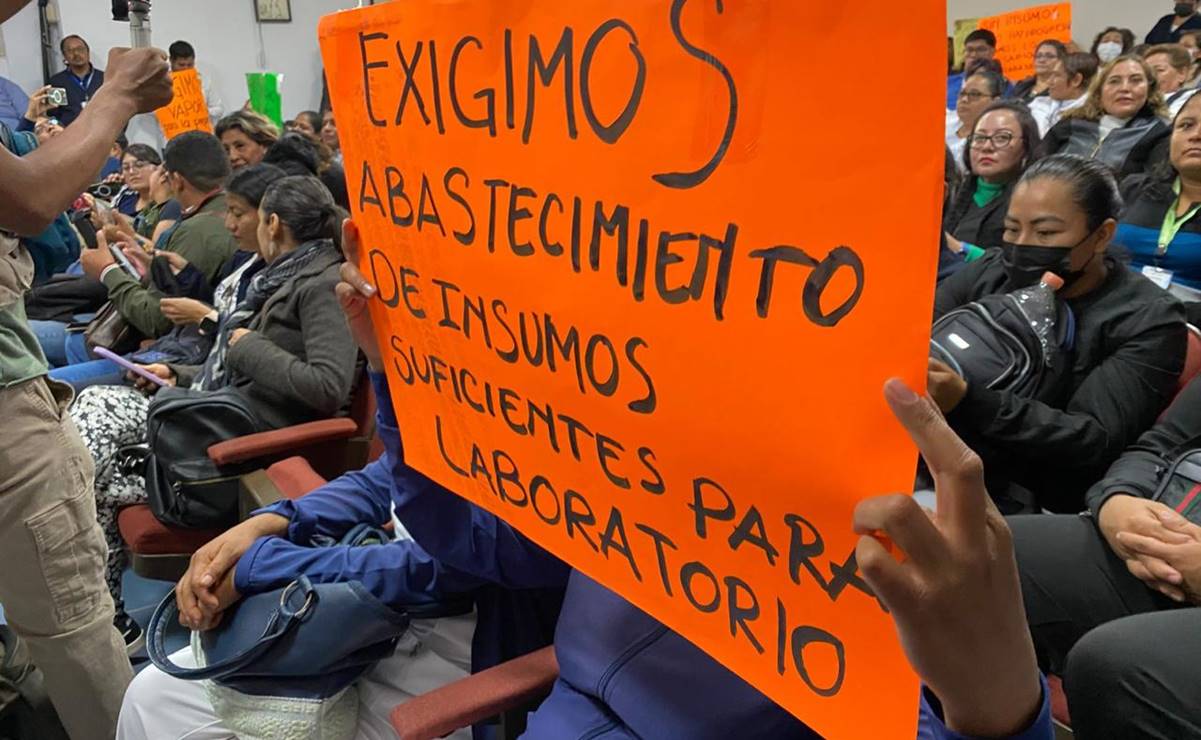 EXIGIMOS
ABASTECIMIENTO
DE INSUMOS
SUFICIENTES PARA
LABORATORIO
INSUMOS
VAPOR